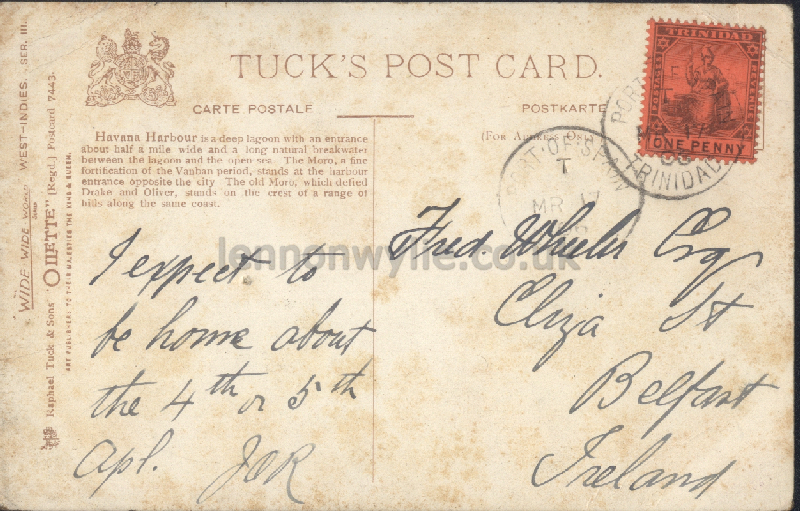 WIDE WIDE WORLD WEST-INDIES. SER. III.
Raphael Tuck & Sons' "OILETTE" (Regd.) Postcard 7443.
ART PUBLISHERS TO THEIR MAJESTIES THE KING & QUEEN.
TUCK'S POST CARD.
CARTE POSTALE
POSTKARTE
(For Address Only)
Havana Harbour is a deep lagoon with an entrance
about half a mile wide and a long natural breakwater
between the lagoon and the open sea. The Moro, a fine
fortification of the Vauban period, stands at the harbour
entrance opposite the city. The old Moro, which defied
Drake and Oliver, stands on the crest of a range of
hills along the same coast.
TRINIDAD
POSTAGE
ONE PENNY
PORT OF
MR 17
TRINIDAD
PORT-OF-SPAIN
T
MR 17
I expect to
be home about
the 4th or 5th
Apl. JCR
Fred. Wheeler Esq
Eliza St
Belfast
Ireland
lennonwylie.co.uk